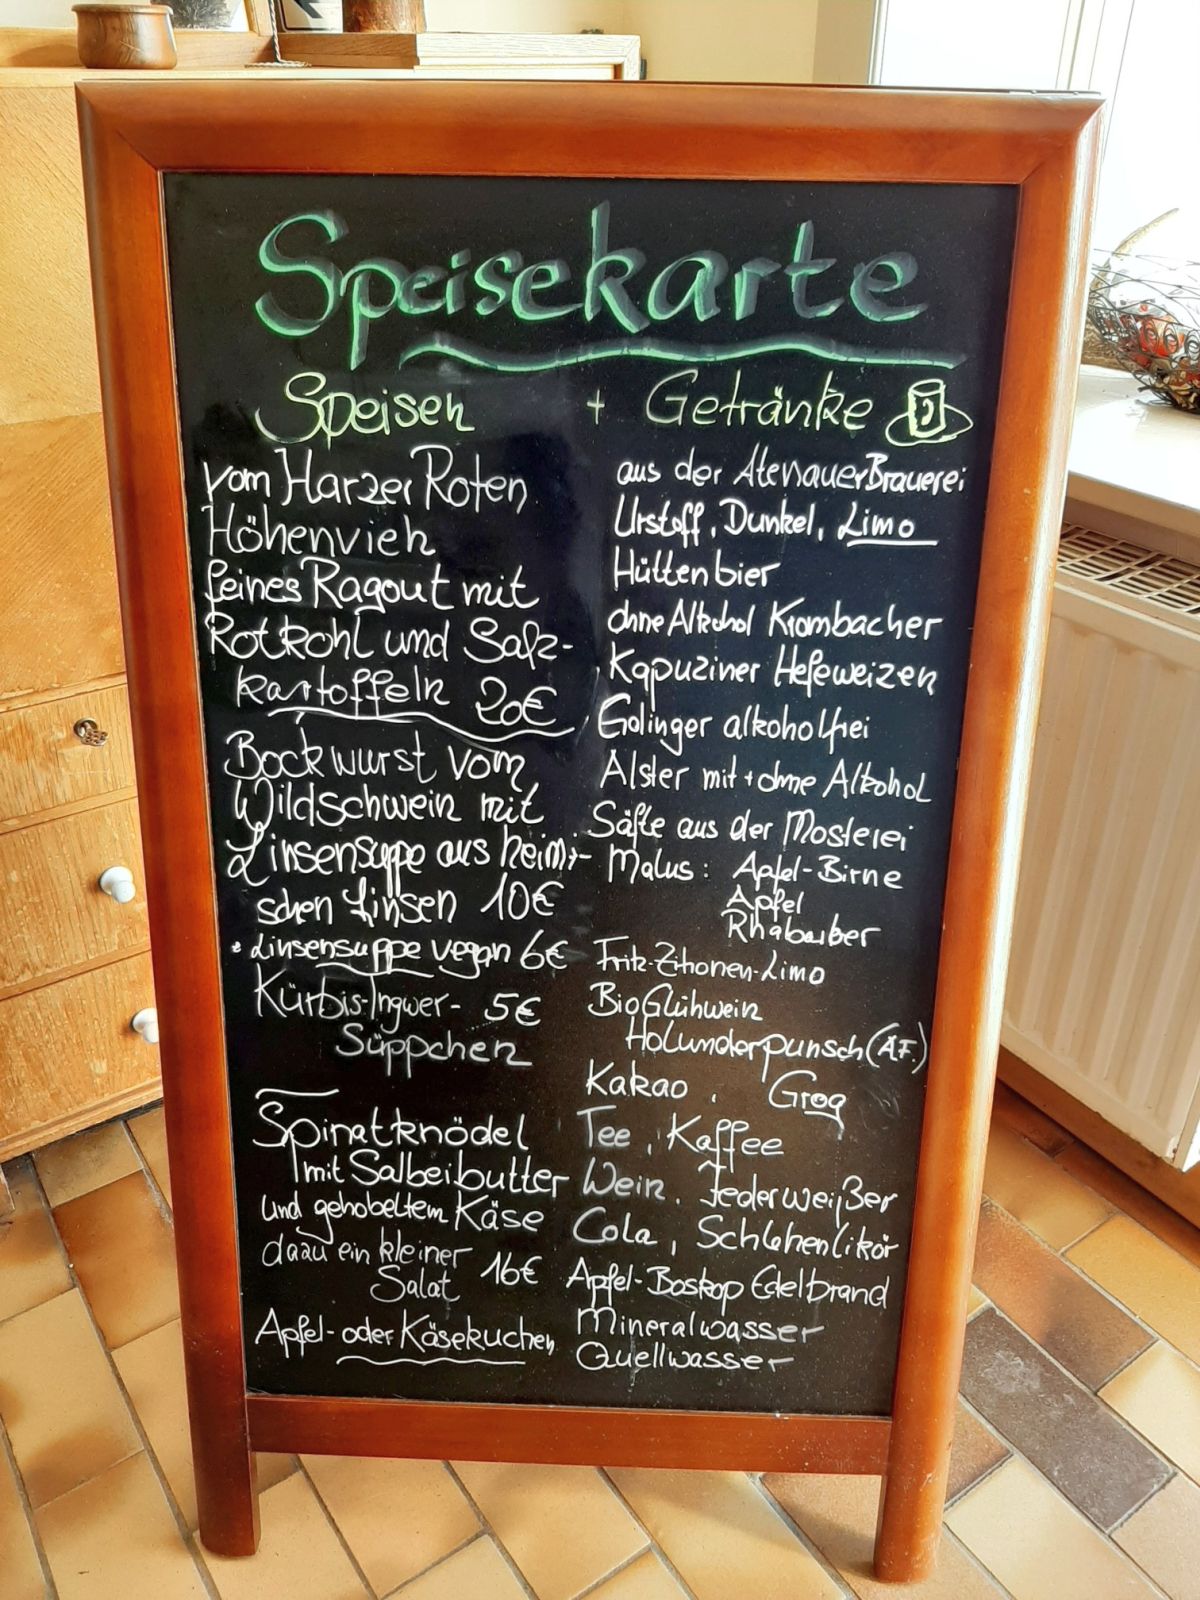 Speisekarte
Speisen + Getränke
vom Harzer Roten
Höhenvieh
feines Ragout mit
Rotkohl und Salz-
kartoffeln 20€
Bockwurst vom
Wildschwein mit
Linsensuppe aus heimi-
schen Linsen 10€
* Linsensuppe vegan 6€
Kürbis-Ingwer- 5€
Süppchen
Spinatknödel
mit Salbeibutter
und gehobeltem Käse
dazu ein kleiner
Salat 16€
Apfel- oder Käsekuchen
aus der Altenauer Brauerei
Urstoff, Dunkel, Limo
Hüttenbier
ohne Alkohol Krombacher
Kapuziner Hefeweizen
alkoholfrei
Alster mit + ohne Alkohol
Säfte aus der Mosterei
Malus: Apfel-Birne
Apfel
Rhabarber
Fritz-Zitronen-Limo
Bio Glühwein
Holunderpunsch (A.F.)
Kakao, Grog
Tee, Kaffee
Wein, Federweißer
Cola, Schlehenlikör
Apfel-Boskop Edelbrand
Mineralwasser
Quellwasser